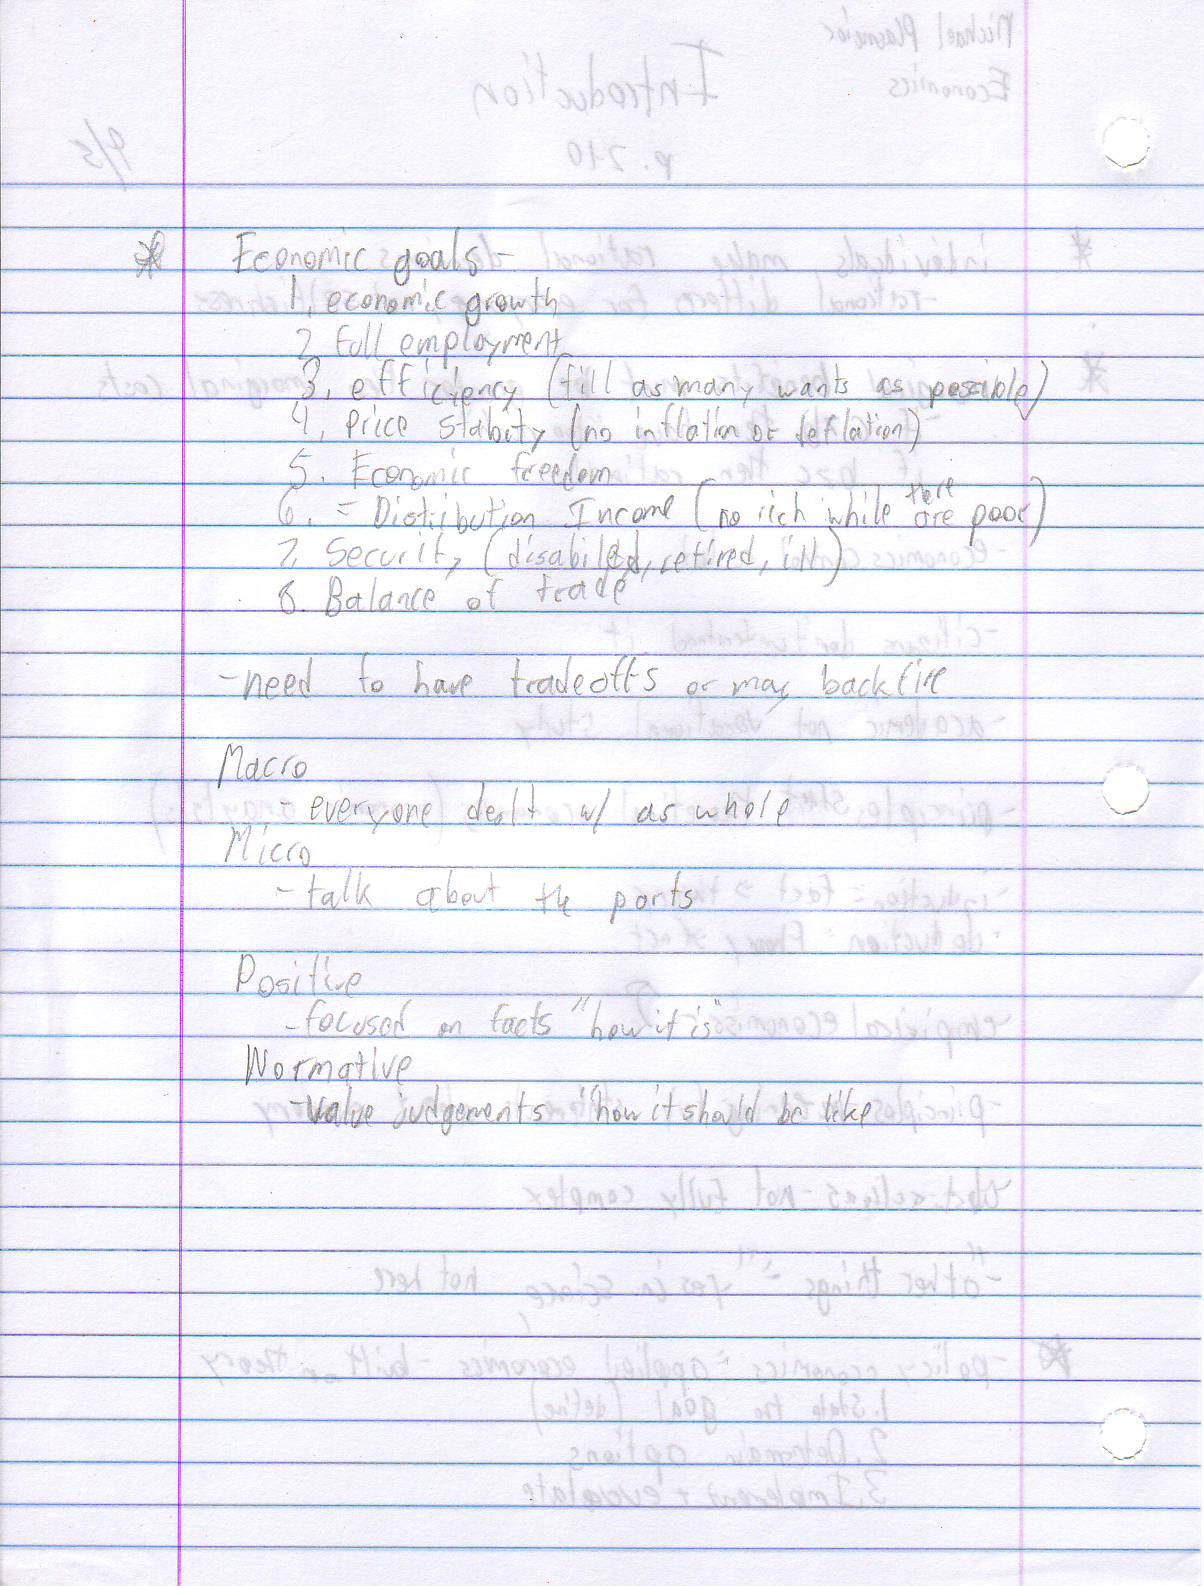 * Economic goals -
1. economic growth
2. Full employment
3. efficiency (fill as many wants as possible)
4. Price stabity (no inflation or deflation)
5. Economic freedom
6. = Distribution Income (no rich while there are poor)
7. Security (disabiled, retired, ill)
8. Balance of trade
- need to have tradeoffs or may backfire
Macro
- everyone dealt w/ as whole
Micro
- talk about the parts
Positive
- focused on facts "how it is"
Normative
- value judgements "how it should be like